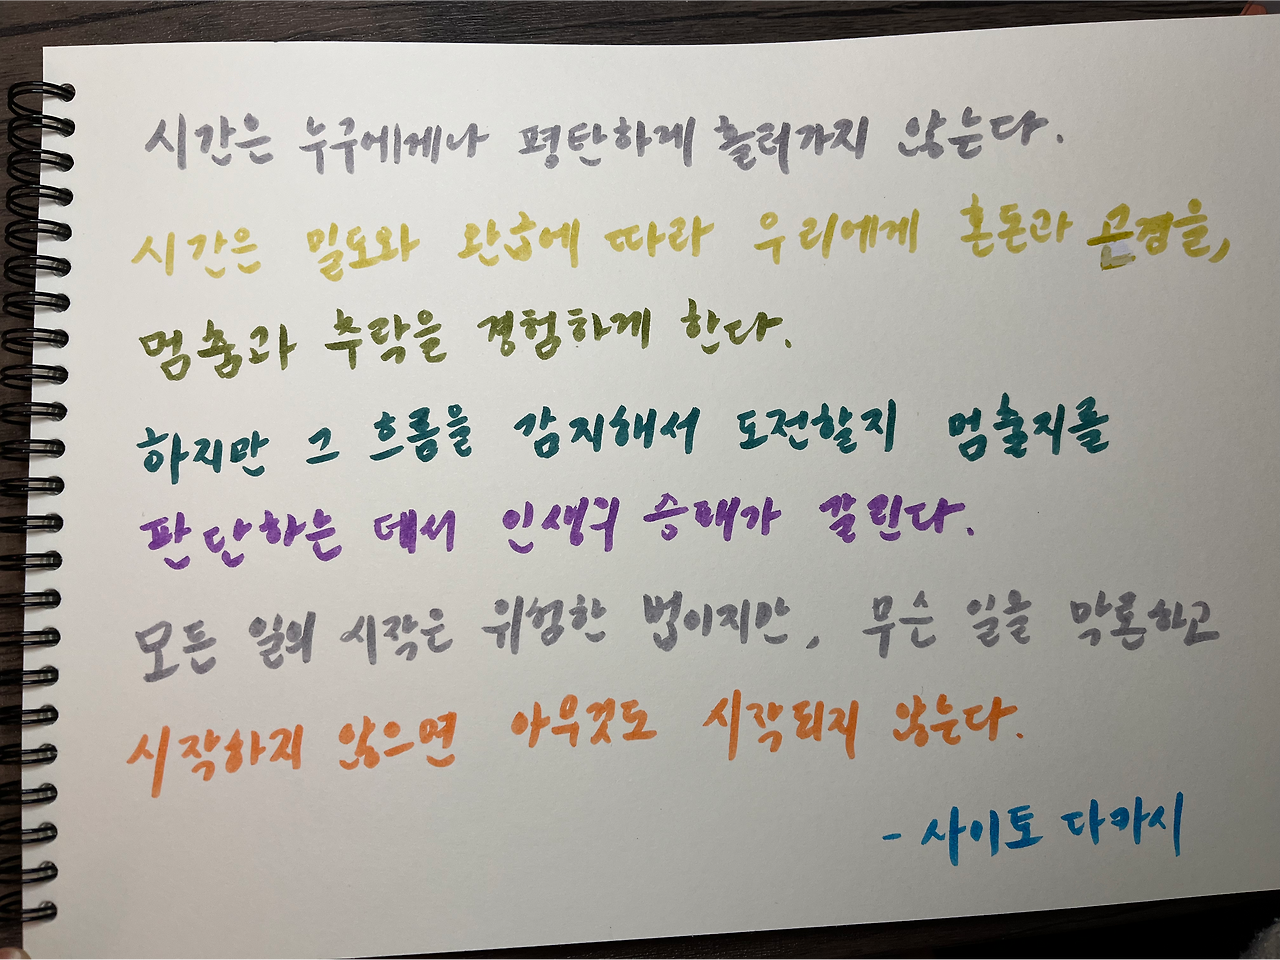 시간은 누구에게나 평탄하게 흘러가지 않는다.
시간은 밀도와 완급에 따라 우리에게 혼돈과 곤경을,
멈춤과 추락을 경험하게 한다.
하지만 그 흐름을 감지해서 도전할지 멈출지를
판단하는 데서 인생의 승패가 갈린다.
모든 일의 시작은 위험한 법이지만, 무슨 일을 막론하고
시작하지 않으면 아무것도 시작되지 않는다.
- 사이토 다카시